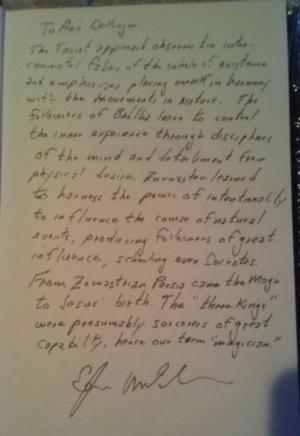 To Ann Dellinger
The Taoist approach observes the inter-
connected fabric of the whole of existence
and emphasizes placing oneself in harmony
with the movements in nature. The
followers of Buddha learn to control
the inner experience through disciplines
of the mind and detachment from
physical desire. Zoroaster learned
to harness the power of intentionality
to influence the course of natural
events, producing followers of great
influence, schooling even Socrates.
From Zoroastrian Persia came the Magi
to Jesus' birth. The "three Kings"
were presumably sorcerers of great
capability, hence our term "magician."